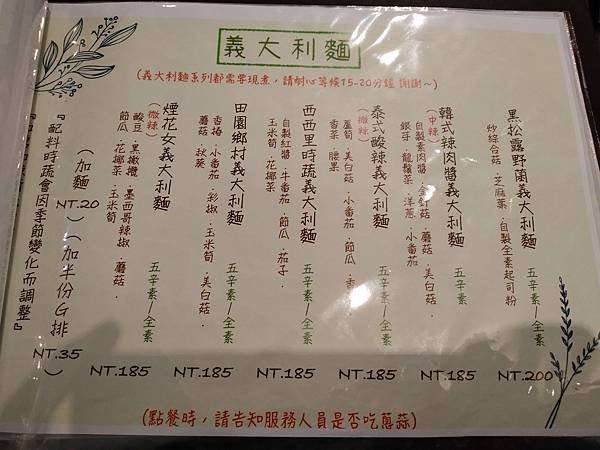 義大利麵
(義大利麵系列都需要現煮，請耐心等候15-20分鐘 謝謝~)
黑松露野蘭義大利麵 五辛素/全素 NT.200
炒綜合菇.芝麻葉.自製全素起司粉
韓式辣肉醬義大利麵 五辛素 NT.185
(中辣) 自製素肉醬.金針菇.蘑菇.美白菇.
銀芽.龍鬚菜.洋蔥.小番茄
泰式酸辣義大利麵 五辛素/全素 NT.185
(微辣) 蘆筍.美白菇.小番茄.節瓜.香
香菜.腰果
西西里時蔬義大利麵 五辛素/全素 NT.185
自製紅醬.牛番茄.節瓜.茄子.
玉米筍.花椰菜
田園鄉村義大利麵 五辛素/全素 NT.185
香椿.小番茄.彩椒.玉米筍.美白菇.
蘑菇.秋葵
煙花女義大利麵 五辛素/全素 NT.185
(微辣) 酸豆.黑橄欖.墨西哥辣椒.蘑菇.
節瓜.花椰菜.玉米筍
(加麵NT.20)(加半份G排NT.35)
『配料時蔬會因季節變化而調整』
(點餐時，請告知服務人員是否吃蔥蒜)